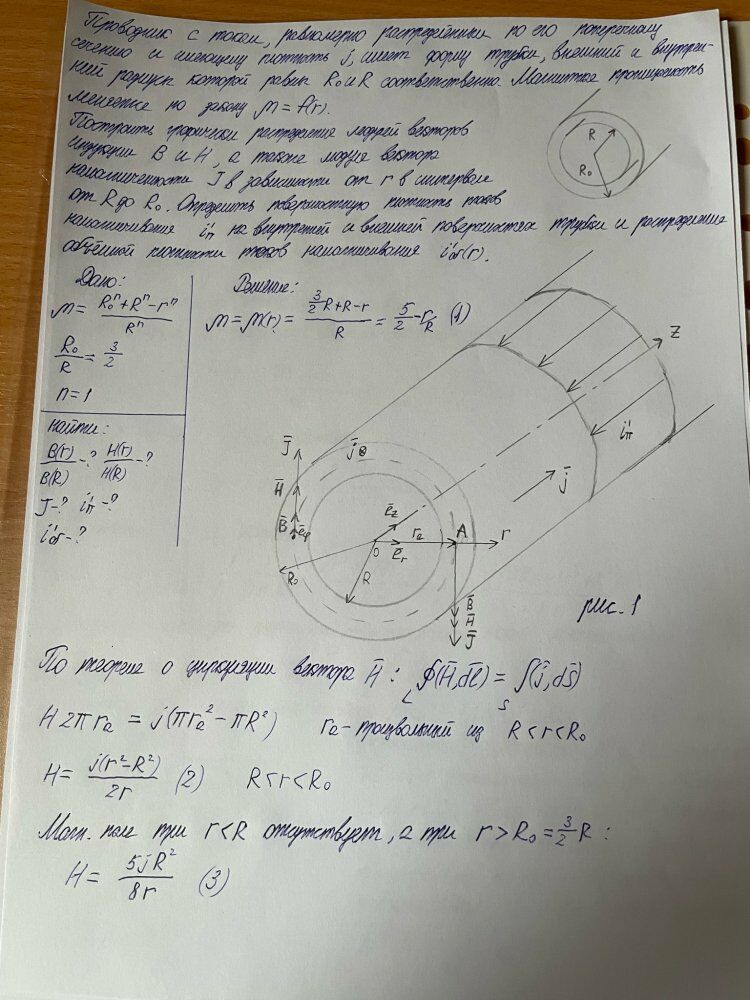 Проводник с током, равномерно распределённым по его поперечному
сечению и имеющему плотность j, имеет форму трубки, внешний и внутрен-
ний радиусы которой равны R₀ и R соответственно. Магнитная проницаемость
меняется по закону μ = f(r).
Построить графически распределения модулей векторов
индукции B и H, а также модуля вектора
намагниченности J в зависимости от r в интервале
от R до R₀. Определить поверхностную плотность токов
намагничивания i'п на внутренней и внешней поверхностях трубки и распределение
объёмной плотности токов намагничивания i'об(r).
R
R₀
Дано:
μ = (R₀ⁿ + Rⁿ − rⁿ)/Rⁿ
R₀/R = 3/2
n = 1
Найти:
B(r)/B(R) − ? H(r)/H(R) − ?
J − ? i'п − ?
i'об − ?
Решение:
μ = μ(r) = (3/2 R + R − r)/R = 5/2 − r/R (1)
z
i'п
J̄
j̄ ⊗
H̄
B̄
ēφ
j̄
ēz
rₑ A r
O ēr
R₀
R
B̄
H̄
J̄
рис. 1
По теореме о циркуляции вектора H̄ : ∮L (H̄, dl̄) = ∫S (j̄, ds̄)
H 2πrₑ = j(πrₑ² − πR²) rₑ − произвольный из R < r < R₀
H = j(r² − R²)/2r (2) R < r < R₀
Магн. поле при r < R отсутствует, а при r > R₀ = 3/2 R :
H = 5jR²/8r (3)